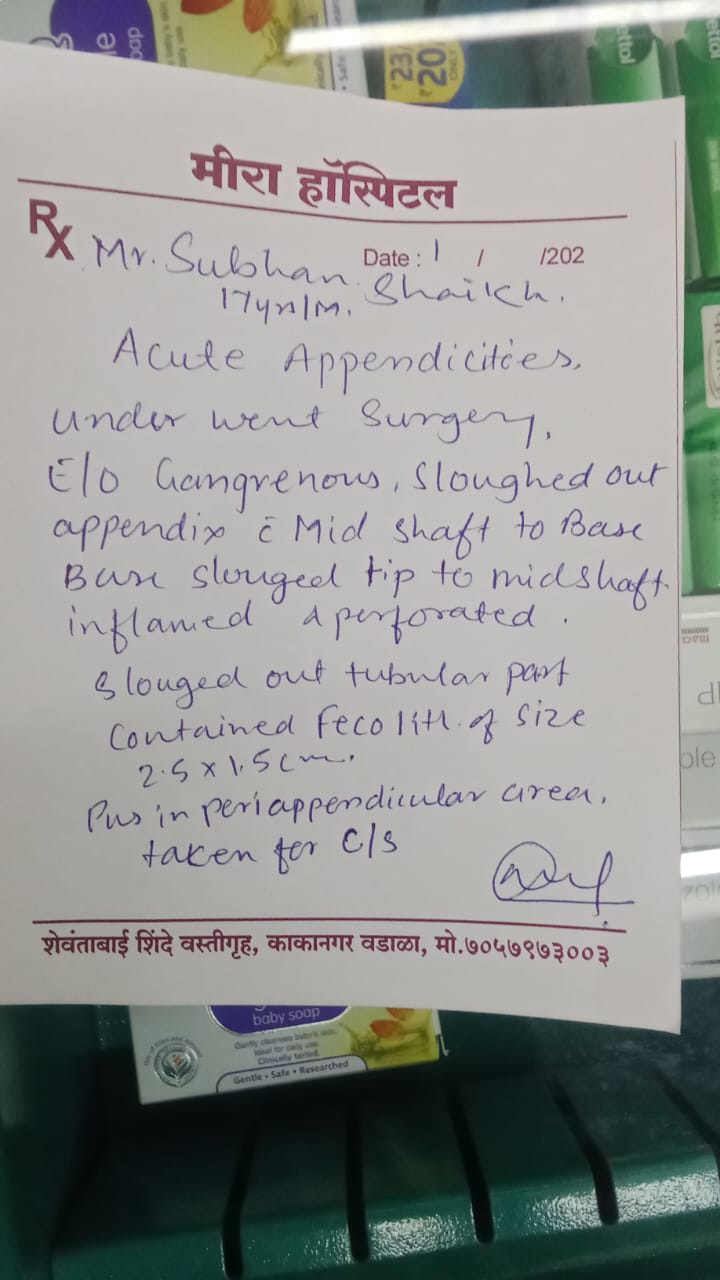 oap
ne
baby's skin.
ally use
₹23/
₹20/
ONLY
ettol
ettol
मीरा हॉस्पिटल
Rx
Date : 1 / /202
Mr. Subhan Shaikh.
17yrs/M.
Acute Appendicities,
under went Surgery,
E/o Gangrenous, Sloughed out
appendix c̄ Mid shaft to Base
Base slouged tip to midshaft
inflamed & perforated.
Slouged out tubular part
Contained fecolith of size
2.5 x 1.5 cm.
Pus in periappendicular area,
taken for c/s
शेवंताबाई शिंदे वस्तीगृह, काकानगर वडाळा, मो.७०५७९७३००३
baby soap
Gently cleanses baby's skin.
Ideal for daily use
Clinically tested
Gentle • Safe • Researched